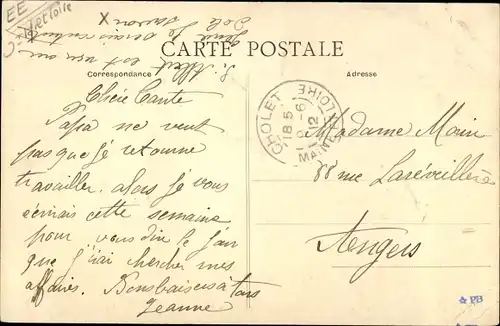 EE
Met Loire
CARTE POSTALE
Correspondance
Adresse
Chère Tante
Papa ne veut
pas que je retourne
travailler. alors je vous
écrirais cette semaine
pour vous dire le jour
que j'irai chercher mes
affaires. Bons baisers à tous
Jeanne
CHOLET
MAINE LOIRE
18 5
-6
12
Madame Morin
88 rue Laréveillère
Angers
PB